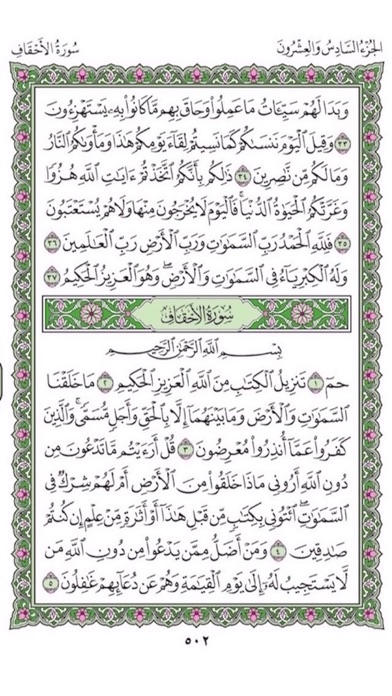 الجزء السادس والعشرون
سورة الأحقاف
وَبَدَا لَهُمْ سَيِّـَٔاتُ مَا عَمِلُوا۟ وَحَاقَ بِهِم مَّا كَانُوا۟ بِهِۦ يَسْتَهْزِءُونَ
٣٣ وَقِيلَ ٱلْيَوْمَ نَنسَىٰكُمْ كَمَا نَسِيتُمْ لِقَآءَ يَوْمِكُمْ هَٰذَا وَمَأْوَىٰكُمُ ٱلنَّارُ
وَمَا لَكُم مِّن نَّٰصِرِينَ ٣٤ ذَٰلِكُم بِأَنَّكُمُ ٱتَّخَذْتُمْ ءَايَٰتِ ٱللَّهِ هُزُوًا
وَغَرَّتْكُمُ ٱلْحَيَوٰةُ ٱلدُّنْيَا ۚ فَٱلْيَوْمَ لَا يُخْرَجُونَ مِنْهَا وَلَا هُمْ يُسْتَعْتَبُونَ
٣٥ فَلِلَّهِ ٱلْحَمْدُ رَبِّ ٱلسَّمَٰوَٰتِ وَرَبِّ ٱلْأَرْضِ رَبِّ ٱلْعَٰلَمِينَ ٣٦
وَلَهُ ٱلْكِبْرِيَآءُ فِى ٱلسَّمَٰوَٰتِ وَٱلْأَرْضِ ۖ وَهُوَ ٱلْعَزِيزُ ٱلْحَكِيمُ ٣٧
سُورَةُ الأَحْقَافِ
بِسْمِ ٱللَّهِ ٱلرَّحْمَٰنِ ٱلرَّحِيمِ
حمٓ ١ تَنزِيلُ ٱلْكِتَٰبِ مِنَ ٱللَّهِ ٱلْعَزِيزِ ٱلْحَكِيمِ ٢ مَا خَلَقْنَا
ٱلسَّمَٰوَٰتِ وَٱلْأَرْضَ وَمَا بَيْنَهُمَآ إِلَّا بِٱلْحَقِّ وَأَجَلٍ مُّسَمًّى ۚ وَٱلَّذِينَ
كَفَرُوا۟ عَمَّآ أُنذِرُوا۟ مُعْرِضُونَ ٣ قُلْ أَرَءَيْتُم مَّا تَدْعُونَ مِن
دُونِ ٱللَّهِ أَرُونِى مَاذَا خَلَقُوا۟ مِنَ ٱلْأَرْضِ أَمْ لَهُمْ شِرْكٌ فِى
ٱلسَّمَٰوَٰتِ ۖ ٱئْتُونِى بِكِتَٰبٍ مِّن قَبْلِ هَٰذَآ أَوْ أَثَٰرَةٍ مِّنْ عِلْمٍ إِن كُنتُمْ
صَٰدِقِينَ ٤ وَمَنْ أَضَلُّ مِمَّن يَدْعُوا۟ مِن دُونِ ٱللَّهِ مَن
لَّا يَسْتَجِيبُ لَهُۥٓ إِلَىٰ يَوْمِ ٱلْقِيَٰمَةِ وَهُمْ عَن دُعَآئِهِمْ غَٰفِلُونَ ٥
٥٠٢